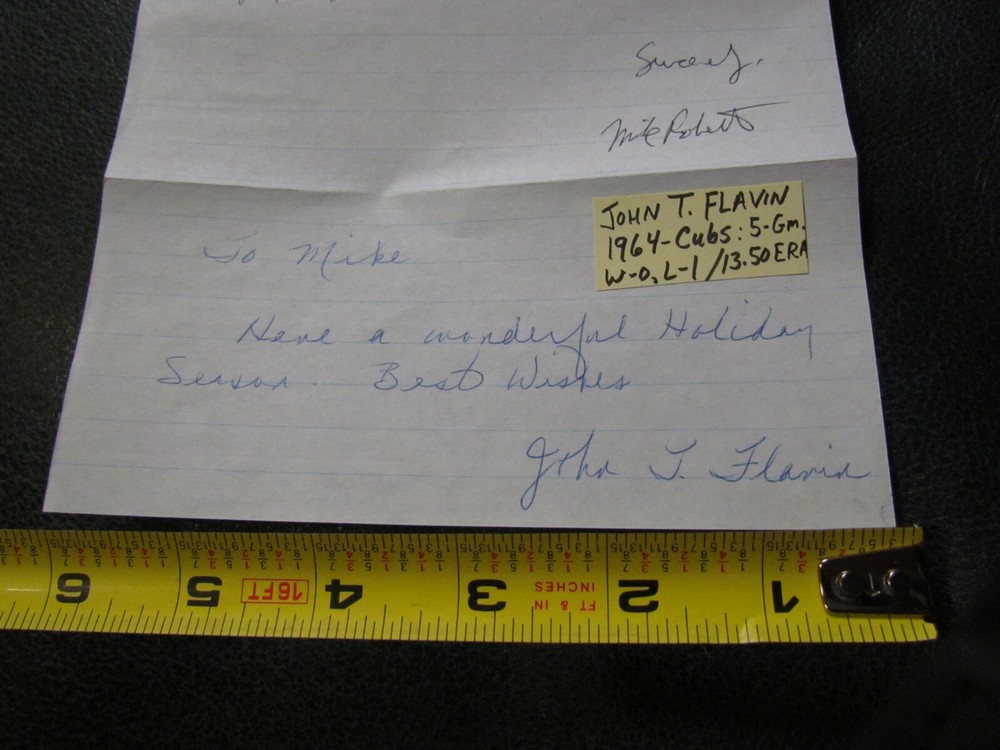 Mike Roberts
JOHN T. FLAVIN
1964-Cubs: 5-Gm.
W-0, L-1 / 13.50 ERA
To Mike
Have a wonderful Holiday
Season. Best Wishes
John T. Flavin
1 2 FT & IN INCHES 3 4 16FT 5 6